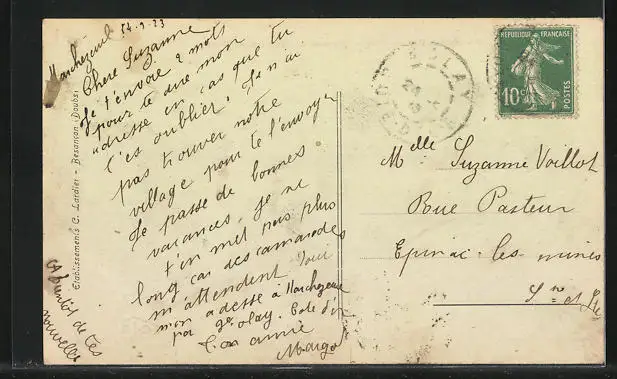 Marchezeuil 24.9.23
Chere Suzanne
Je t'envoie 2 mots
pour te dire mon
adresse en cas que tu
l'ais oublier. Je n'ai
pas trouver notre
village pour te l'envoyer
Je passe de bonnes
vacances. Je ne
t'en met pas plus
long car des camarades
m'attendent
mon adresse à Marchezeuil
par Colay. Cote d'or
Ton amie
Margo
A bientôt de tes
nouvelles
Etablissements C. Lardier - Besançon (Doubs)
REPUBLIQUE FRANÇAISE
10c
POSTES
Melle Suzanne Voillot
Rue Pasteur
Epinac-les-mines
Sne et Lre